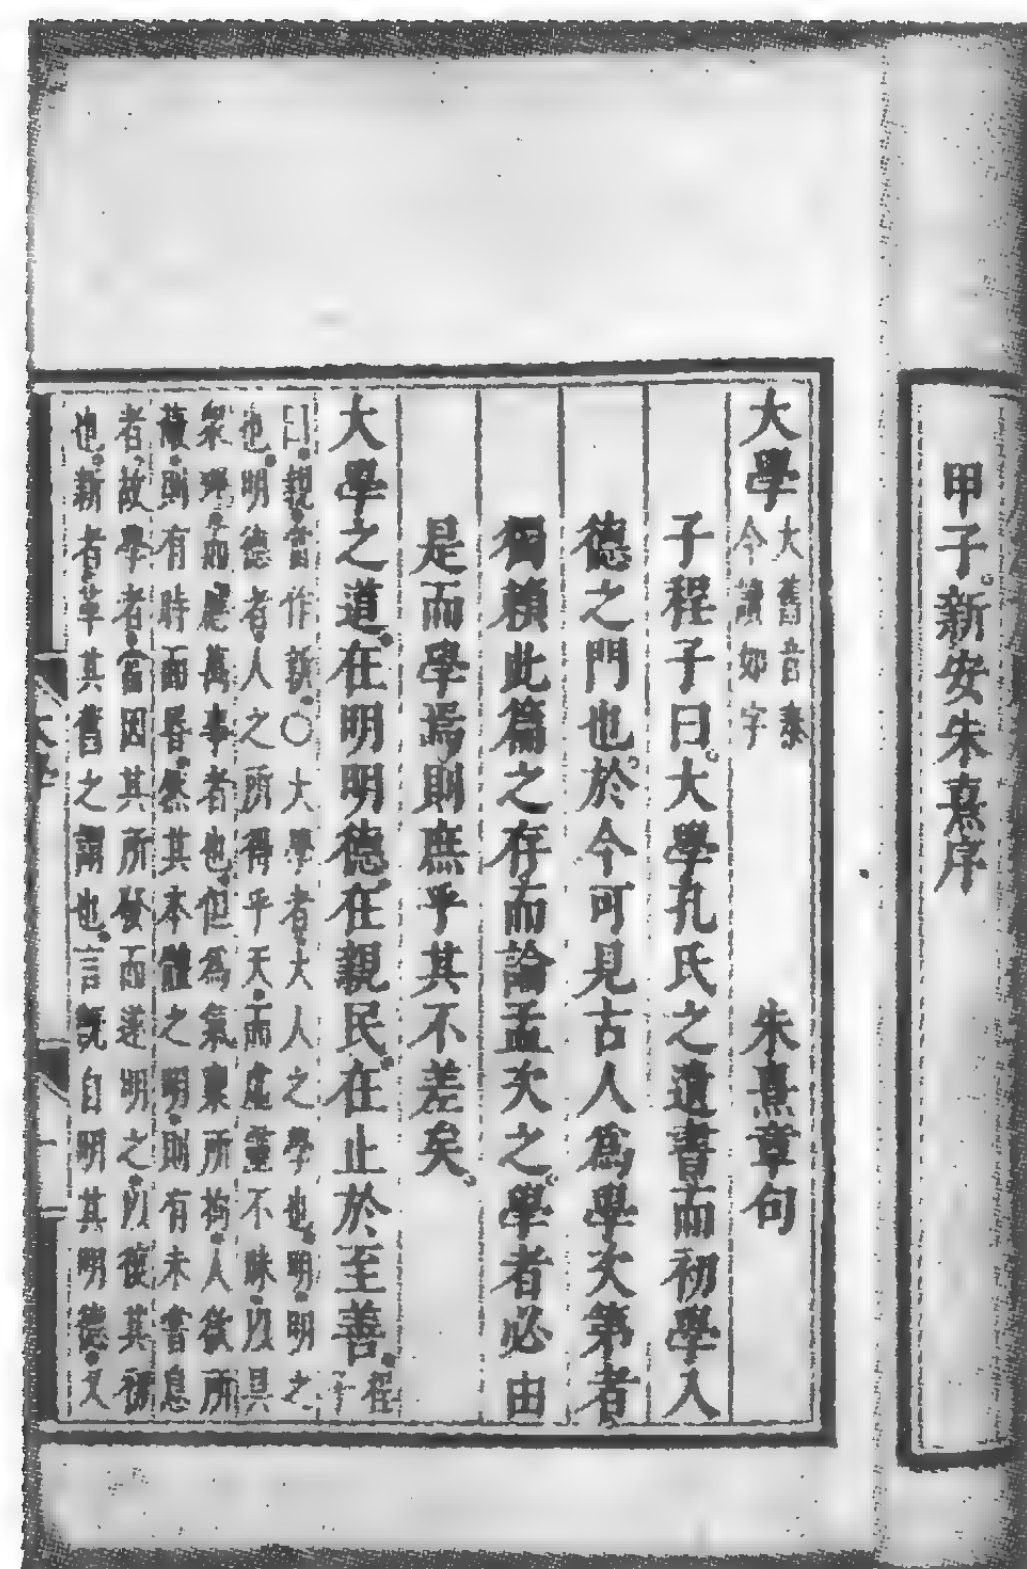 甲子新安朱熹序
大學 大舊音泰今讀如字 朱熹章句
子程子曰大學孔氏之遺書而初學入
德之門也於今可見古人爲學次第者
獨賴此篇之存而論孟次之學者必由
是而學焉則庶乎其不差矣
大學之道在明明德在親民在止於至善 程子
曰親當作新○大學者大人之學也明明之
也明德者人之所得乎天而虛靈不昧以具
衆理而應萬事者也但爲氣稟所拘人欲所
蔽則有時而昏然其本體之明則有未嘗息
者故學者當因其所發而遂明之以復其初
也新者革其舊之謂也言既自明其明德又